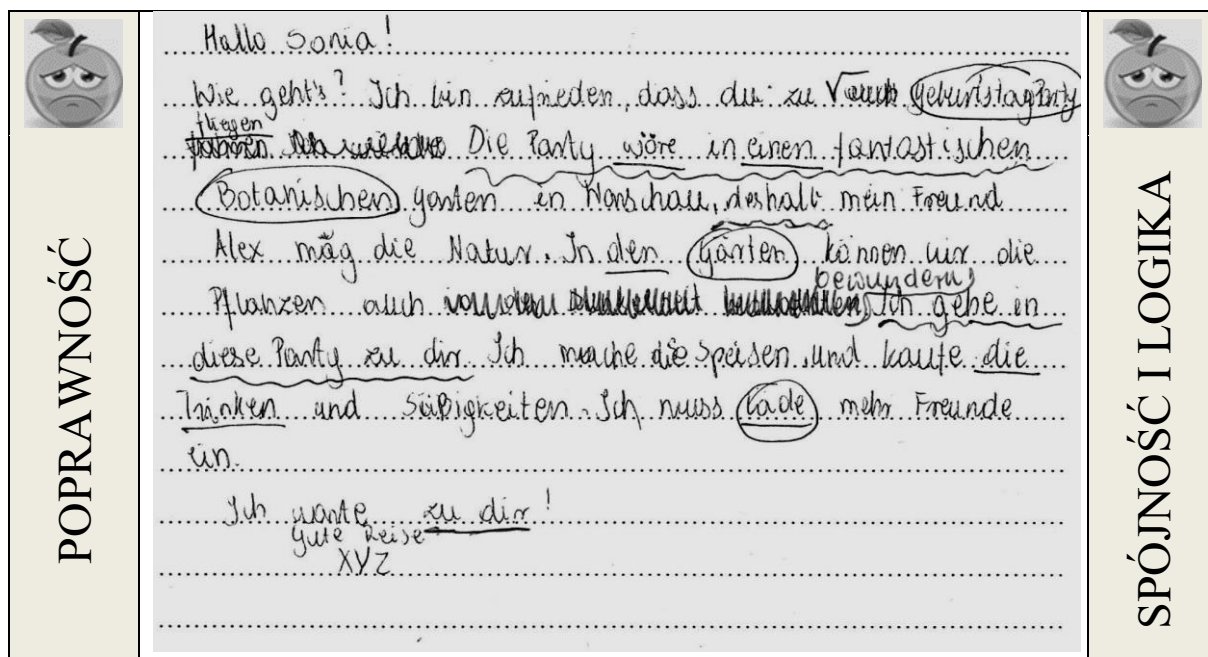 POPRAWNOŚĆ
Hallo Sonia!
Wie geht's? Ich bin zufrieden, dass du zu √ GeburtstagParty
fliegen
Die Party wöre in einen fantastischen
Botanischen garten in Warschau, deshalt mein Freund
Alex mäg die Natur. In den Gärten können wir die
bewundern
Pflanzen auch Ich gehe in
diese Party zu dir. Ich mache die Speisen und kaufe die
Trinken und Süßigkeiten. Ich muss lade mehr Freunde
ein.
Ich warte zu dir!
Gute Reise
XYZ
SPÓJNOŚĆ I LOGIKA